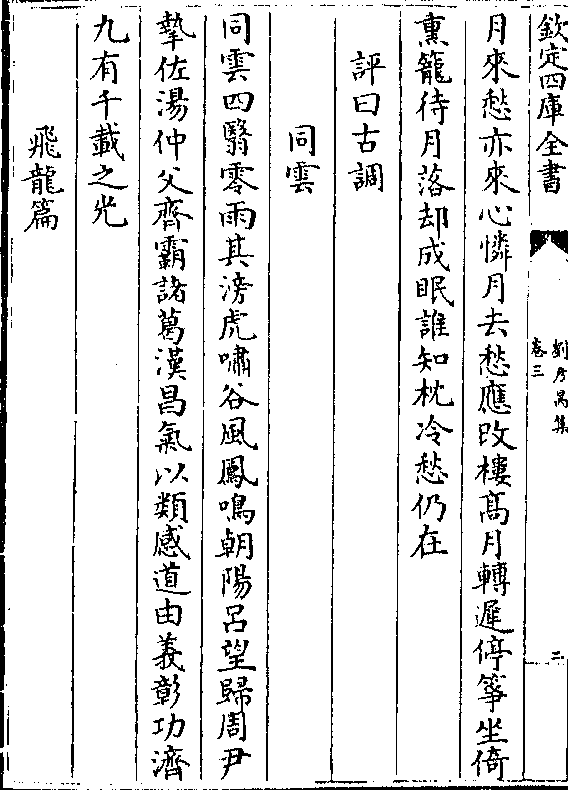 欽定四庫全書
劉彥昺集
卷三
二
月來愁亦來心憐月去愁應改樓髙月轉遲停箏坐倚
熏籠待月落却成眠誰知枕冷愁仍在
評曰古調
同雲
同雲四翳零雨其滂虎嘯谷風鳳鳴朝陽吕望歸周尹
摯佐湯仲父齊霸諸葛漢昌氣以類感道由義彰功濟
九有千載之光
飛龍篇